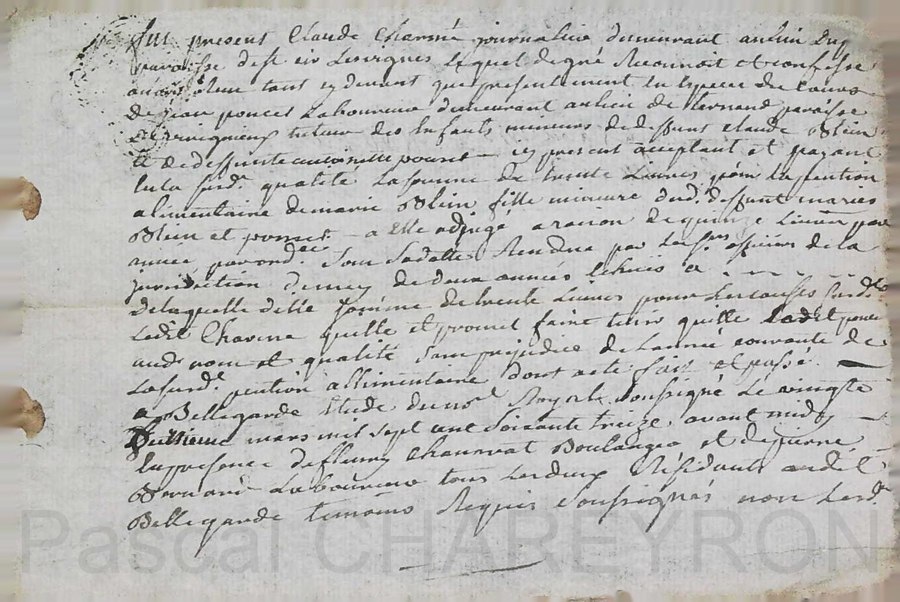 Fut present Claude Charmé journalier demeurant au lieu du
paroisse de st cir Lesvignes Lequel degré Reconnoit et confesse
avoir eleu tant cydevant que presentement en Espece de Cours
de jean poncet Laboureur demeurant au lieu de paroisse
tuteur des Enfants mineurs de deffunt Claude Blein
et de deffunte poncet icy present acceptant et payant
en la susd. qualité La somme de trente Livres pour la pention
alimentaine de marie Blein fille mineure dud. deffunt mariés
Blein et poncet a elle adjugé a raison de quinze Livres par
année par ord.ce Rendue par les srs officiers de la
jurisdiction de de deux années Echuës
De laquelle ditte somme de trente Livres pour Lescauses susd.
Ledit Charme quitte et promet faire tenir quitte Ledit poncet
aud. nom et qualité sans prejudice de Lannée courante de
La susd. pention allimentaine dont acte fait et passé
a Bellegarde Etude du no.re Royal soussigné Le vingte
huitieme mars mil sept cent soixante treize, avant midy
En presence de fleury Chauvat Boulanger et de pierre
Bernard Laboureur tous Lesdeux Résidants audit
Bellegarde temoins Requis Soussignés non Led.
Pascal CHAREYRON